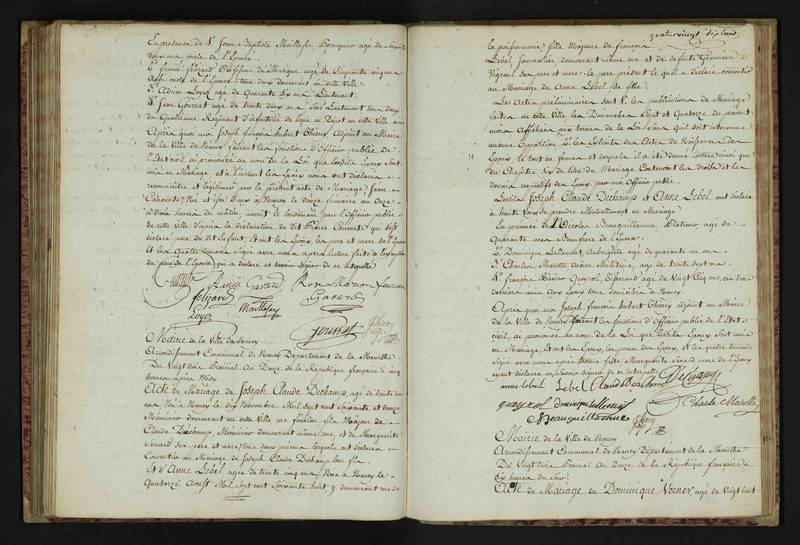 En présence de Sr. Jean Baptiste Maillefer, Perruquier agé de
deux ans oncle de l'Epouse
agé de Cinquante cinq ans
aussi oncle de l'Epouse tous deux demeurant en cette Ville.
3°. Adrien Loyez agé de Quarante six ans Lieutenant.
4°. Jean Gousset agé de trente deux ans Sous Lieutenant tous deux
du Quatrieme Regiment d'infanterie de ligne en Depot en cette Ville
Après quoi moi Joseph françois hubert Thiery Adjoint au Maire
de la Ville de Nancy faisant les fonctions d'Officier public de
l'Etat civil ai prononcé au nom de la Loi que lesdits Epoux sont
unis en Mariage et à l'instant les Epoux nous ont déclaré
reconnaitre et légitimer par le présent acte de Mariage Jean
Nancy le douze frimaire an Onze
à trois heures du matin, inscrit le lendemain par l'Officier public
de cette Ville d'après la déclaration du dit Pierre qui s'est
déclaré père de dit Enfant, Et ont les Epoux, les pere et mere de l'Epouse
et les Quatre temoins Signé avec nous après lecture faite à l'exception
de l'Epouse qui a déclaré ne savoir signer de ce interpellé
Gavard Rose Marion
Gavard
Maillefer
Loyez
Gousset
Thiery
Mairie de la Ville de Nancy
Arrondissement Communal de Nancy Departement de la Meurthe
Du Vingt trois Prairial An Douze de la République française à cinq
heures après Midi
Acte de Mariage de Joseph Claude Dechamp, agé de trente un
ans Né à Nancy le dix Novembre Mil sept cent soixante et douze
Menuisier demeurant en cette Ville rue fils Majeur de
Claude Dechamp Menuisier demeurant même rue et de Marguerite
Simard ses pere et mere tous deux présens lesquels ont déclaré
Consentir au Mariage de Joseph Claude Dechamp leur fils.
Et d'Anne Lebel agée de trente cinq ans Née à Nancy le
Quatorze Aoust Mil sept cent soixante huit, y demeurant rue de
quatrevingt dix huit
la poissonnerie fille Majeure de françois
Lebel Journalier demeurant même rue et de défunte Genevieve
Vigroux ses pere et mere, le pere présent lequel a déclaré consentir
au Mariage de Anne Lebel sa fille.
Les Actes préliminaires sont 1°. les publications de Mariage
faites en cette Ville les Dimanches Sept et Quatorze du présent
mois Affichées aux termes de la Loi sans qu'il soit intervenu
aucune Opposition 2°. les Extraits des Actes de Naissance des
Epoux, le tout en forme et desquels il a été donné lecture ainsi que
du Chapitre Six du titre du Mariage Contenant les droits et les
devoirs respectifs des Epoux par moi Officier public.
Lesdits Joseph Claude Dechamp et Anne Lebel ont déclaré
à haute Voix se prendre Mutuellement en Mariage
En présence de 1°. Nicolas Beauguillaume, Platrier, agé de
Quarante ans Beaufrere de l'Epoux.
2°. Dominique Lallement, Aubergiste agé de quarante un an
3°. Charles Marotte Militaire, agé de trente sept ans
4°. françois Xavier Quayrol, agé de Vingt Cinq ans, ces trois
derniers amis aux Epoux tous domiciliés à Nancy
Après quoi moi Joseph françois hubert Thiery adjoint au Maire
de la Ville de Nancy faisant les fonctions d'Officier public de l'Etat
civil, ai prononcé au nom de la Loi que lesdits Epoux sont unis
en Mariage, Et ont les Epoux, les peres des Epoux, et les quatre témoins
Signé avec nous après lecture faite, Marguerite Simard mere de l'Epoux
ayant déclaré ne Savoir signer de ce interpellé
anne lebel Lebel Claud Dechamp Dechamp
quayrol Dominique Lallement Charle Marotte
N Beauguillaume Thiery
Mairie de la Ville de Nancy
Arrondissement Communal de Nancy Departement de la Meurthe
Du Vingt trois Prairial An Douze de la République française à
six heures du Soir.
Acte de Mariage de Dominique Verner agé de Vingt huit